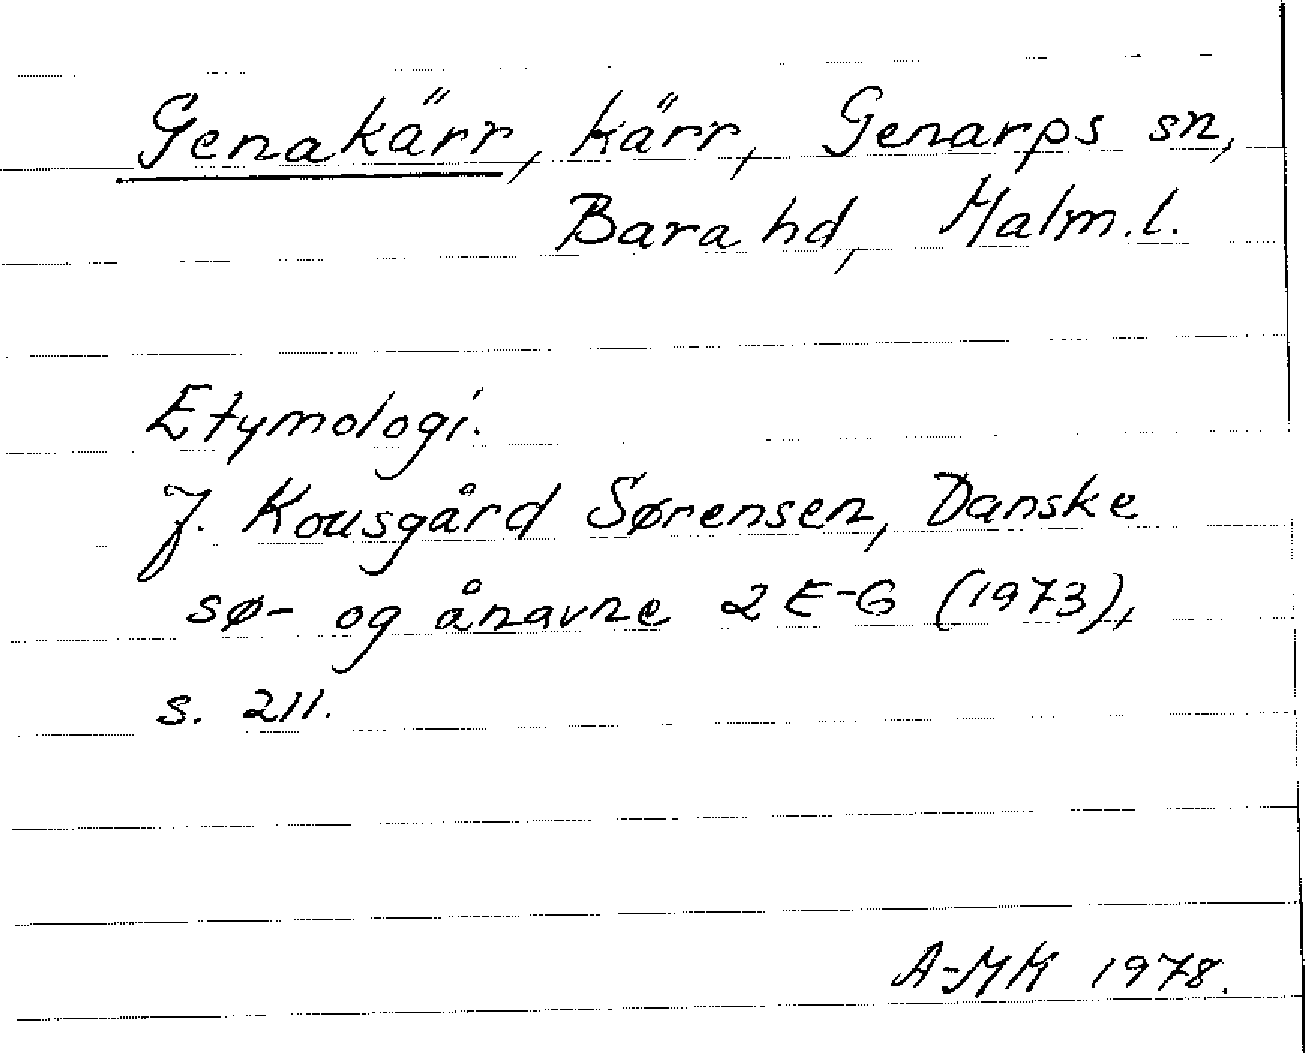 Genakärr, kärr, Genarps sn,
Bara hd, Malm.l.
Etymologi.
J. Kousgård Sørensen, Danske
sø- og ånavne 2 E-G (1973),
s. 211.
A-MK 1978.